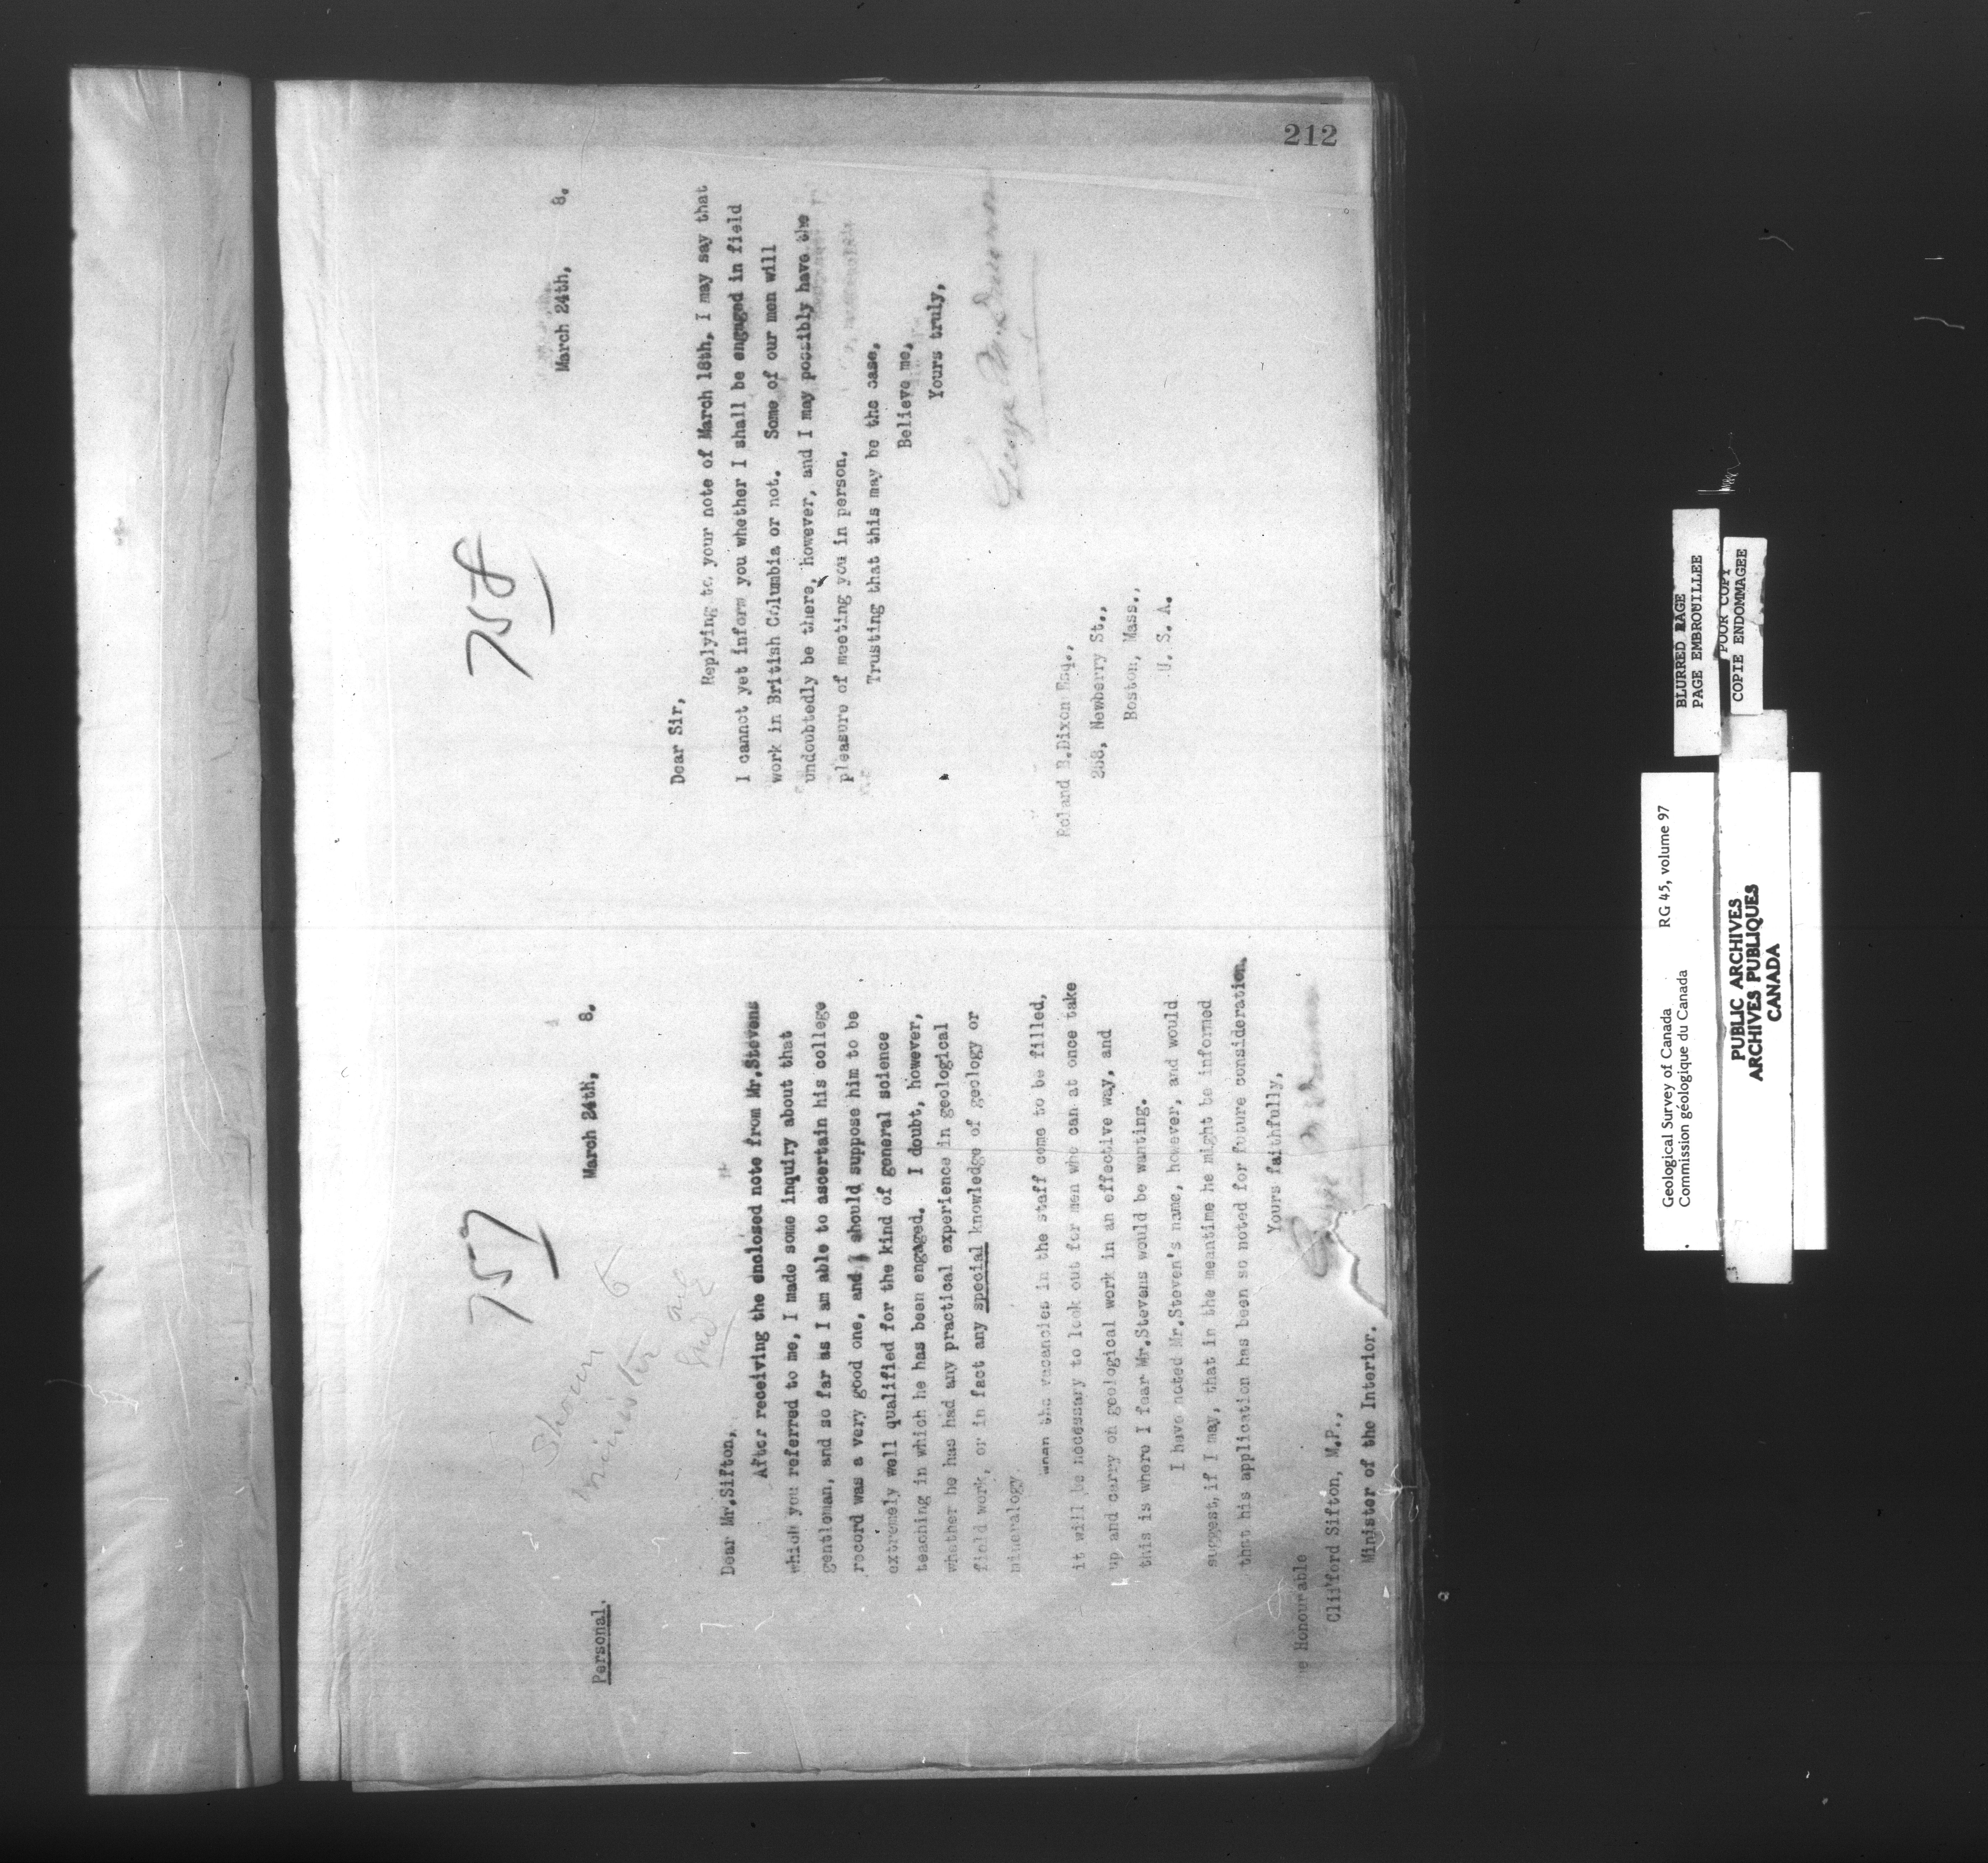 212
757
Shown to
Minister
Personal.
March 24th, 8.
Dear Mr.Sifton,
After receiving the enclosed note from Mr.Stevens
which you referred to me, I made some inquiry about that
gentleman, and so far as I am able to ascertain his college
record was a very good one, and I should suppose him to be
extremely well qualified for the kind of general science
teaching in which he has been engaged. I doubt, however,
whether he has had any practical experience in geological
field work, or in fact any special knowledge of geology or
mineralogy.
When the vacancies in the staff come to be filled,
it will be necessary to look out for men who can at once take
up and carry on geological work in an effective way, and
this is where I fear Mr.Stevens would be wanting.
I have noted Mr.Steven's name, however, and would
suggest, if I may, that in the meantime he might be informed
that his application has been so noted for future consideration.
Yours faithfully,
George M Dawson
e Honourable
Clifford Sifton, M.P.,
Minister of the Interior.
758
March 24th, 8.
Dear Sir,
Replying to your note of March 18th, I may say that
I cannot yet inform you whether I shall be engaged in field
work in British Columbia or not. Some of our men will
undoubtedly be there, however, and I may possibly have the
pleasure of meeting you in person.
Trusting that this may be the case,
Believe me,
Yours truly,
George M. Dawson
Roland B.Dixon Esq.,
258, Newberry St.,
Boston, Mass.,
U. S. A.
BLURRED PAGE
PAGE EMBROUILLEE
POOR COPY
COPIE ENDOMMAGEE
Geological Survey of Canada RG 45, volume 97
Commission géologique du Canada
PUBLIC ARCHIVES
ARCHIVES PUBLIQUES
CANADA